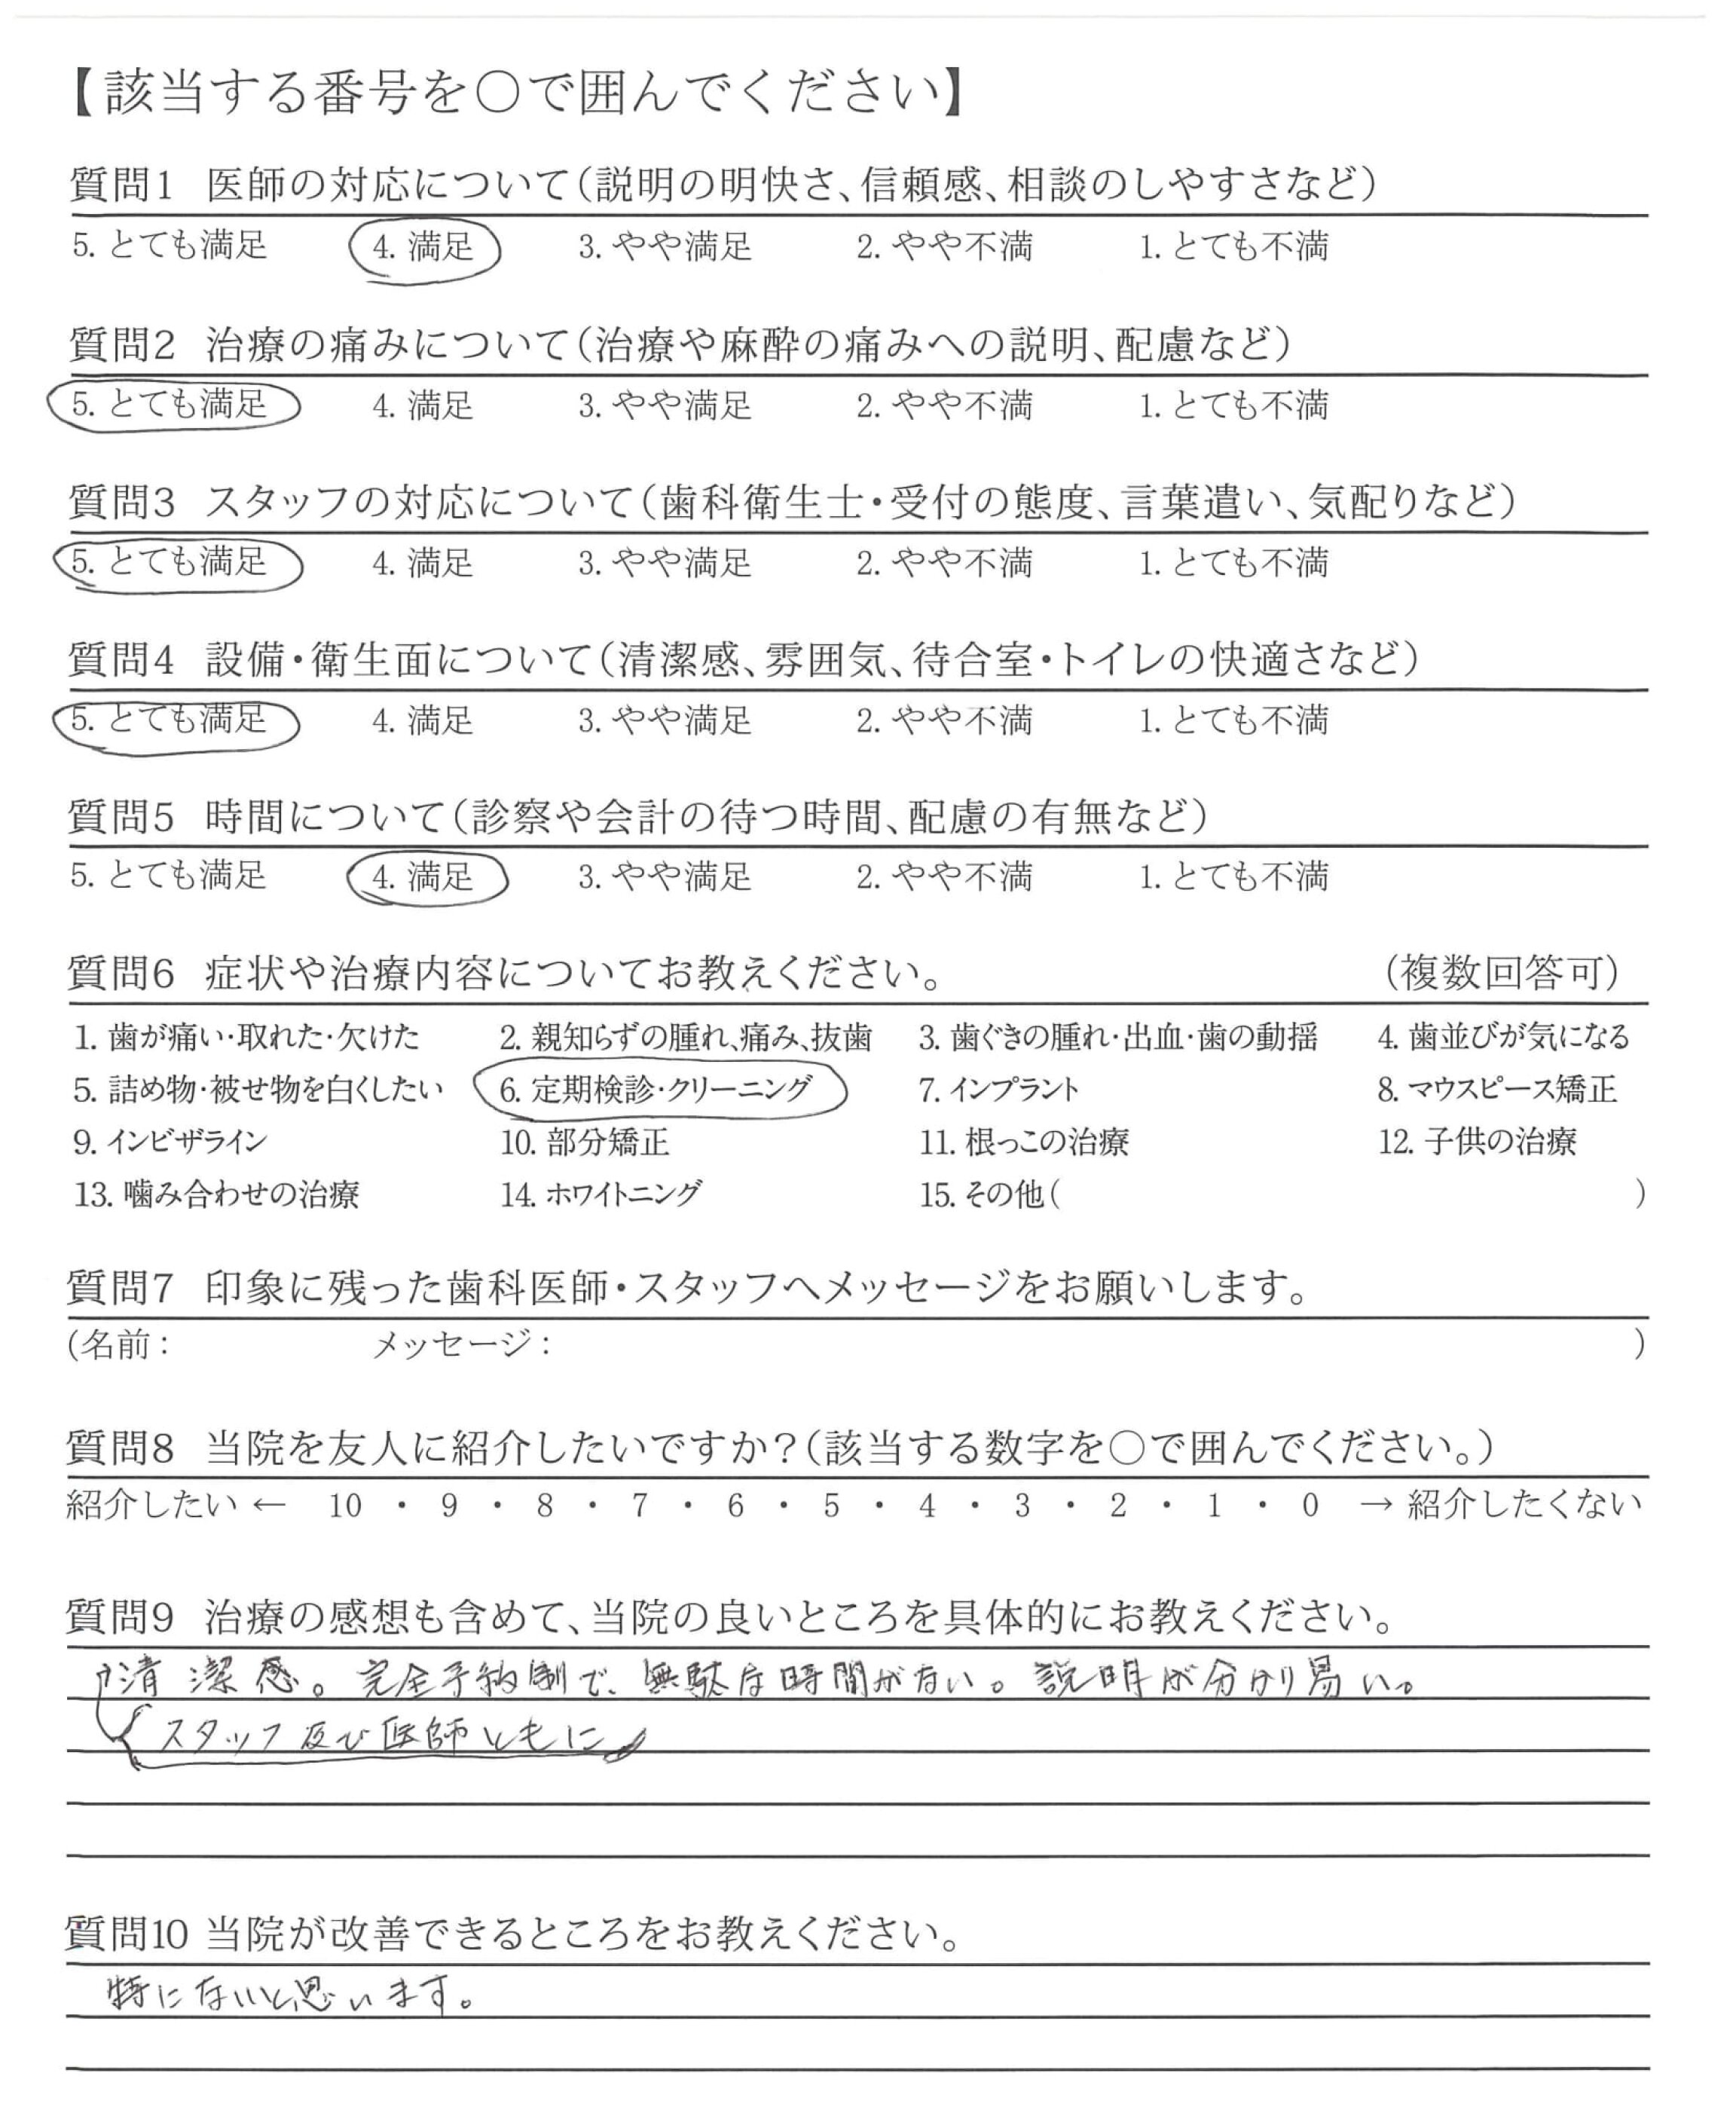 【該当する番号を○で囲んでください】
質問1 医師の対応について(説明の明快さ、信頼感、相談のしやすさなど)
5. とても満足 4. 満足 3. やや満足 2. やや不満 1. とても不満
質問2 治療の痛みについて(治療や麻酔の痛みへの説明、配慮など)
5. とても満足 4. 満足 3. やや満足 2. やや不満 1. とても不満
質問3 スタッフの対応について(歯科衛生士・受付の態度、言葉遣い、気配りなど)
5. とても満足 4. 満足 3. やや満足 2. やや不満 1. とても不満
質問4 設備・衛生面について(清潔感、雰囲気、待合室・トイレの快適さなど)
5. とても満足 4. 満足 3. やや満足 2. やや不満 1. とても不満
質問5 時間について(診察や会計の待つ時間、配慮の有無など)
5. とても満足 4. 満足 3. やや満足 2. やや不満 1. とても不満
質問6 症状や治療内容についてお教えください。 (複数回答可)
1. 歯が痛い・取れた・欠けた 2. 親知らずの腫れ、痛み、抜歯 3. 歯ぐきの腫れ・出血・歯の動揺 4. 歯並びが気になる
5. 詰め物・被せ物を白くしたい 6. 定期検診・クリーニング 7. インプラント 8. マウスピース矯正
9. インビザライン 10. 部分矯正 11. 根っこの治療 12. 子供の治療
13. 噛み合わせの治療 14. ホワイトニング 15. その他( )
質問7 印象に残った歯科医師・スタッフへメッセージをお願いします。
(名前: メッセージ: )
質問8 当院を友人に紹介したいですか?(該当する数字を○で囲んでください。)
紹介したい ← 10 ・ 9 ・ 8 ・ 7 ・ 6 ・ 5 ・ 4 ・ 3 ・ 2 ・ 1 ・ 0 → 紹介したくない
質問9 治療の感想も含めて、当院の良いところを具体的にお教えください。
清潔感。完全予約制で、無駄な時間がない。説明が分かり易い。
スタッフ及び医師ともに
質問10 当院が改善できるところをお教えください。
特にないと思います。